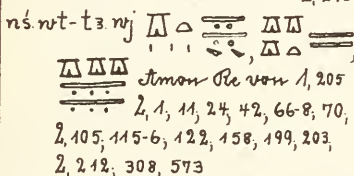 nś.wt-tꜣ.wj
Amon Re von 1, 205
2, 1; 11, 24, 42, 66-8; 70;
2, 105; 115-6; 122; 158; 199, 203,
2, 212; 308, 573